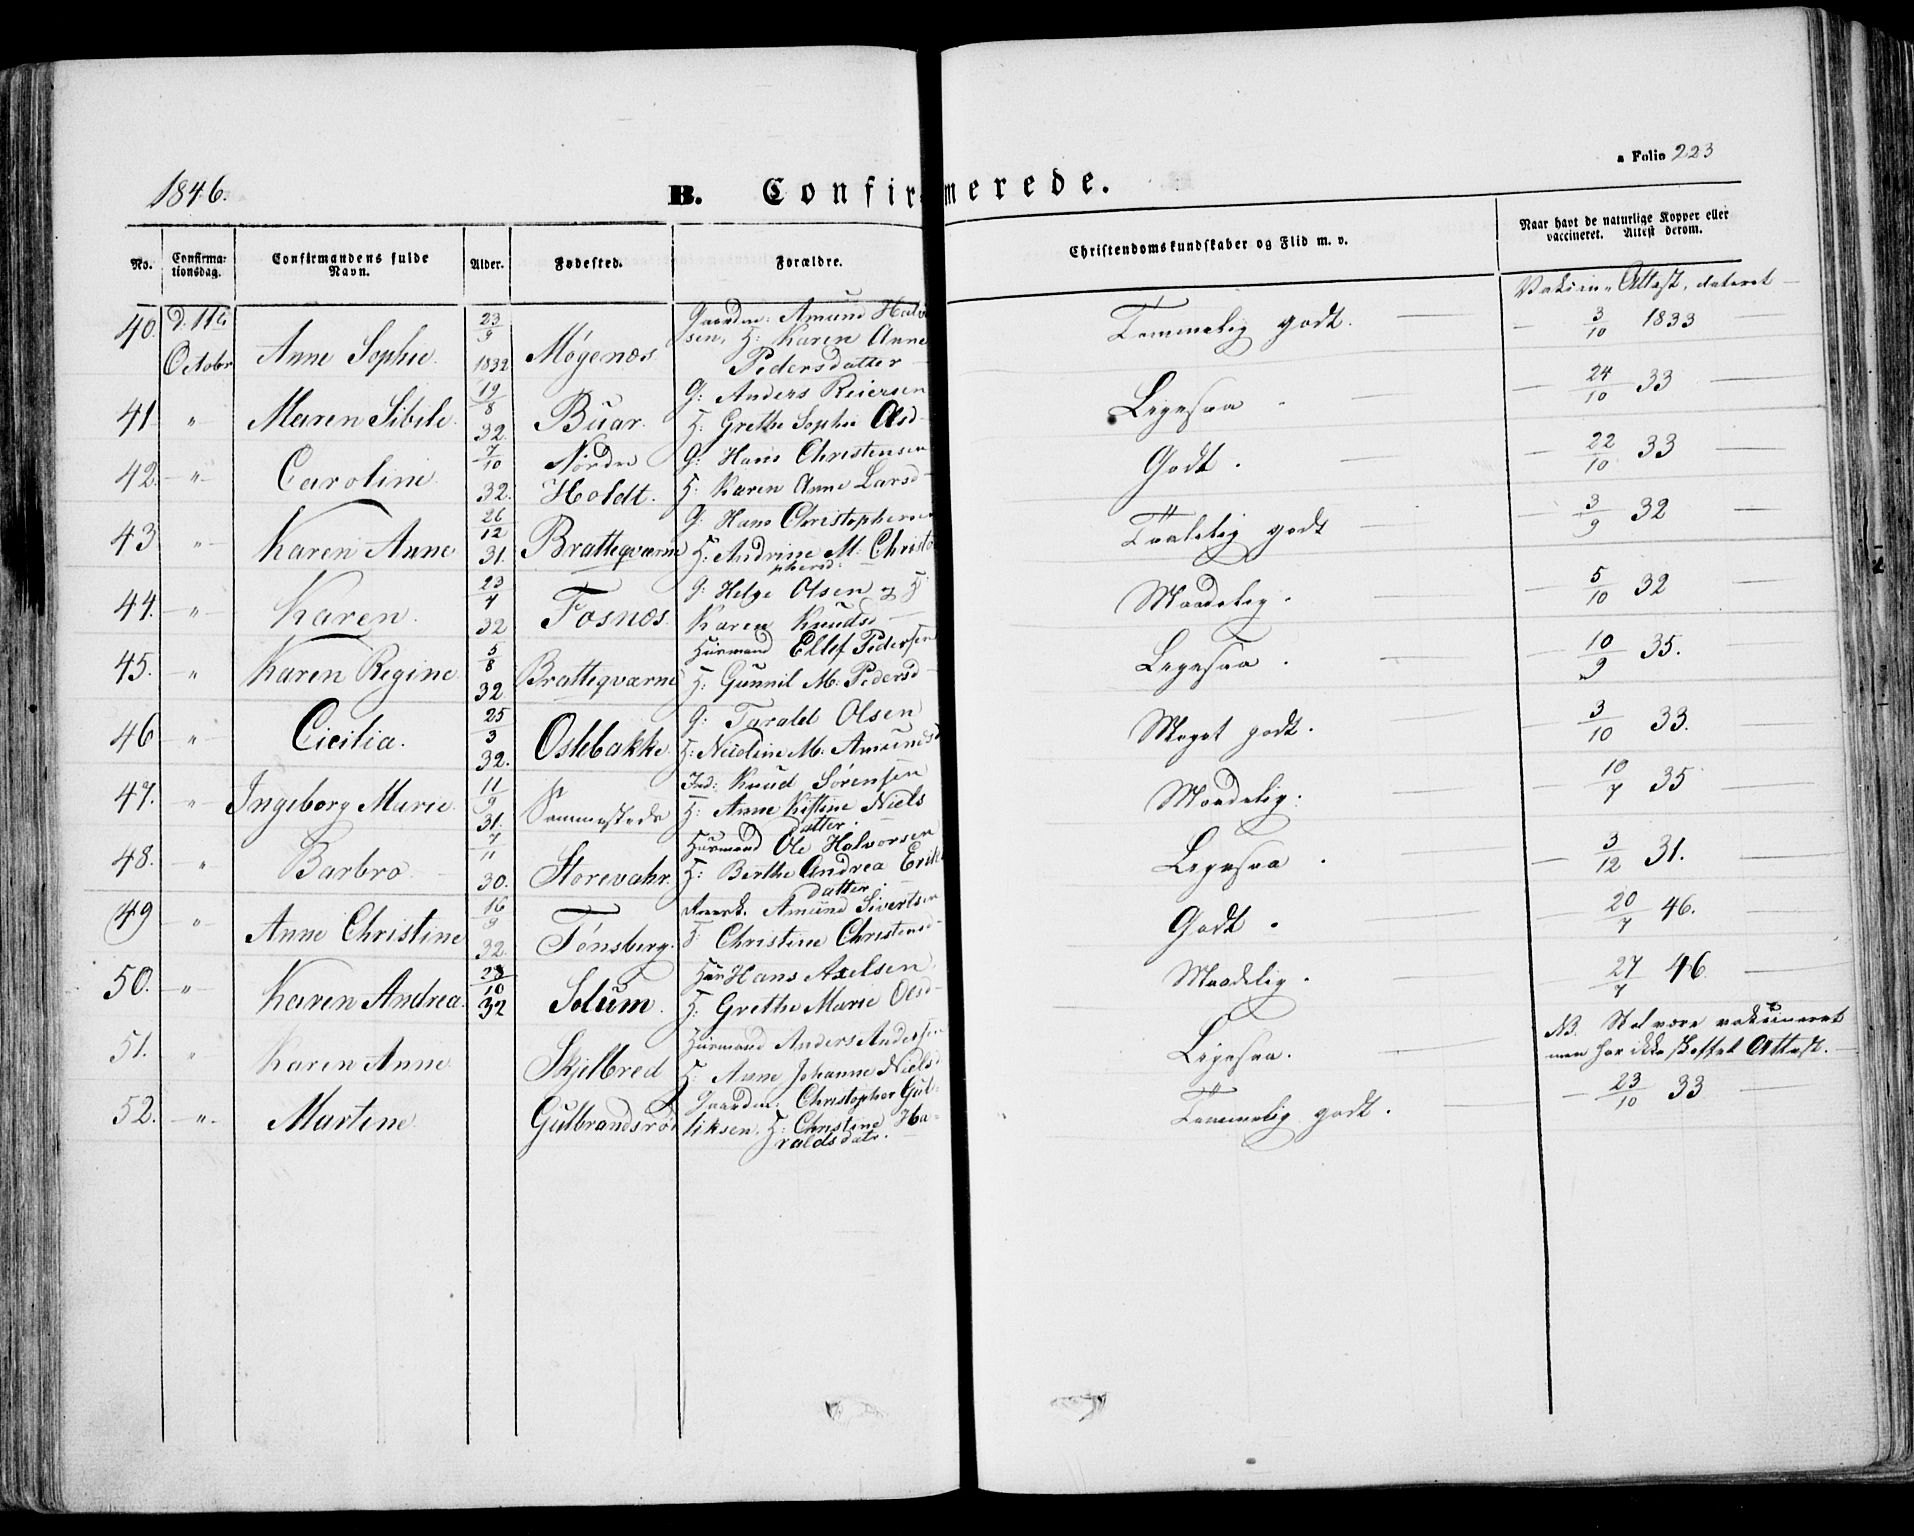 1846.
B. Confirmerede.
a Folio 223
No. Confirmationsdag. Confirmandens fulde Navn. Alder. Fødested. Forældre. Christendomskundskaber og Flid m. v. Naar havt de naturlige Kopper eller vaccineret. Attest derom.
Vaksin. Attest, dateret
40. d. 11te October Anne Sophie. 23/9 1832 Møgenæs Gaardm: Amund Halvorsen, H: Karen Anne Pedersdatter Temmelig godt. 3/10 1833
41 " Maren Sibile. 19/8 32. Buar. G: Anders Reiersen H: Grethe Sophie Olsd Ligesaa 24/10 33
42. " Caroline 7/10 32. Nordre Holdt. G: Hans Christensen H: Karen Anne Larsd Godt. 22/10 33
43 " Karen Anne 26/12 31. Bratteqværne G: Hans Christophersen H: Andrine M: Christophersd: Taalelig godt 3/9 32
44. " Karen. 23/4 32 Fosnæs G: Helge Olsen og H Karen Knudsd Maadelig. 5/10 32
45. " Karen Regine 5/8 32. Bratteqværne Huusmand Ellef Pedersen H: Gunnil M: Pedersd Ligesaa. 10/9 35.
46 " Cicilia. 25/3 32. Oslebakke. G: Tarald Olsen H: Nicoline M. Amundsd Meget godt. 3/10 33.
47. " Ingeborg Marie. 11/9 31. Sammesteds Ind: Knud Sørensen H: Anne Kistine Nielsdatter. Maadelig. 10/7 35
48. " Barbro 7/11 30. Storevahr. Huusmand Ole Halvorsen H: Berthe Andrea Eriksdatter. Ligesaa. 3/12 31.
49 " Anne Christine 16/9 32. Tønsberg. Amund Sivertsen H Christine Christensd Godt. 20/7 46.
50. " Karen Andrea. 28/10 32 Solum. Huus Hans Axelsen H: Grethe Marie Olsd Maadelig. 27/7 46
51. " Karen Anne Skjelbred Huusmand Anders Andersen H: Anne Johanne Nielsd Ligesaa. NB. Skal være vaksineret men har ikke skaffet Attest.
52. " Martine Gulbrandsrød Gaardm: Christopher Gulliksen. H: Christine Haraldsdatr. Temmelig godt. 23/10 33